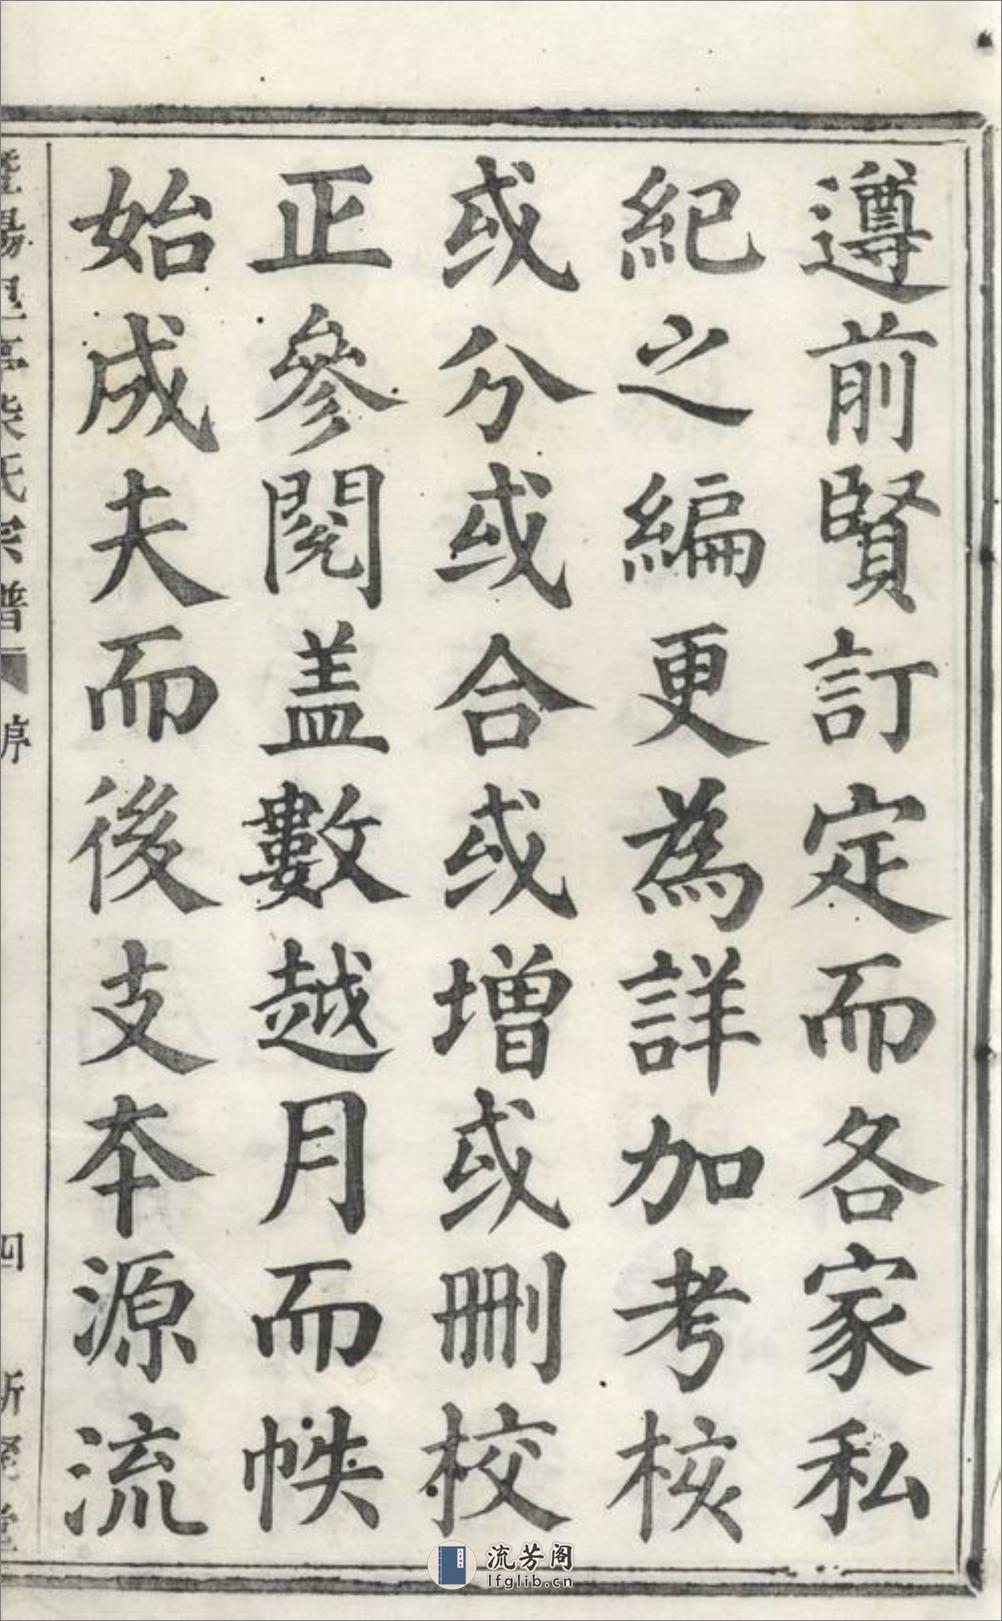 遵前賢訂定而各家私
紀之編更為詳加考核
或分或合或增或刪校
正參閱盖數越月而帙
始成夫而後支本源流
暨陽里亭柴氏宗譜 序 四
流芳阁
lfglib.cn